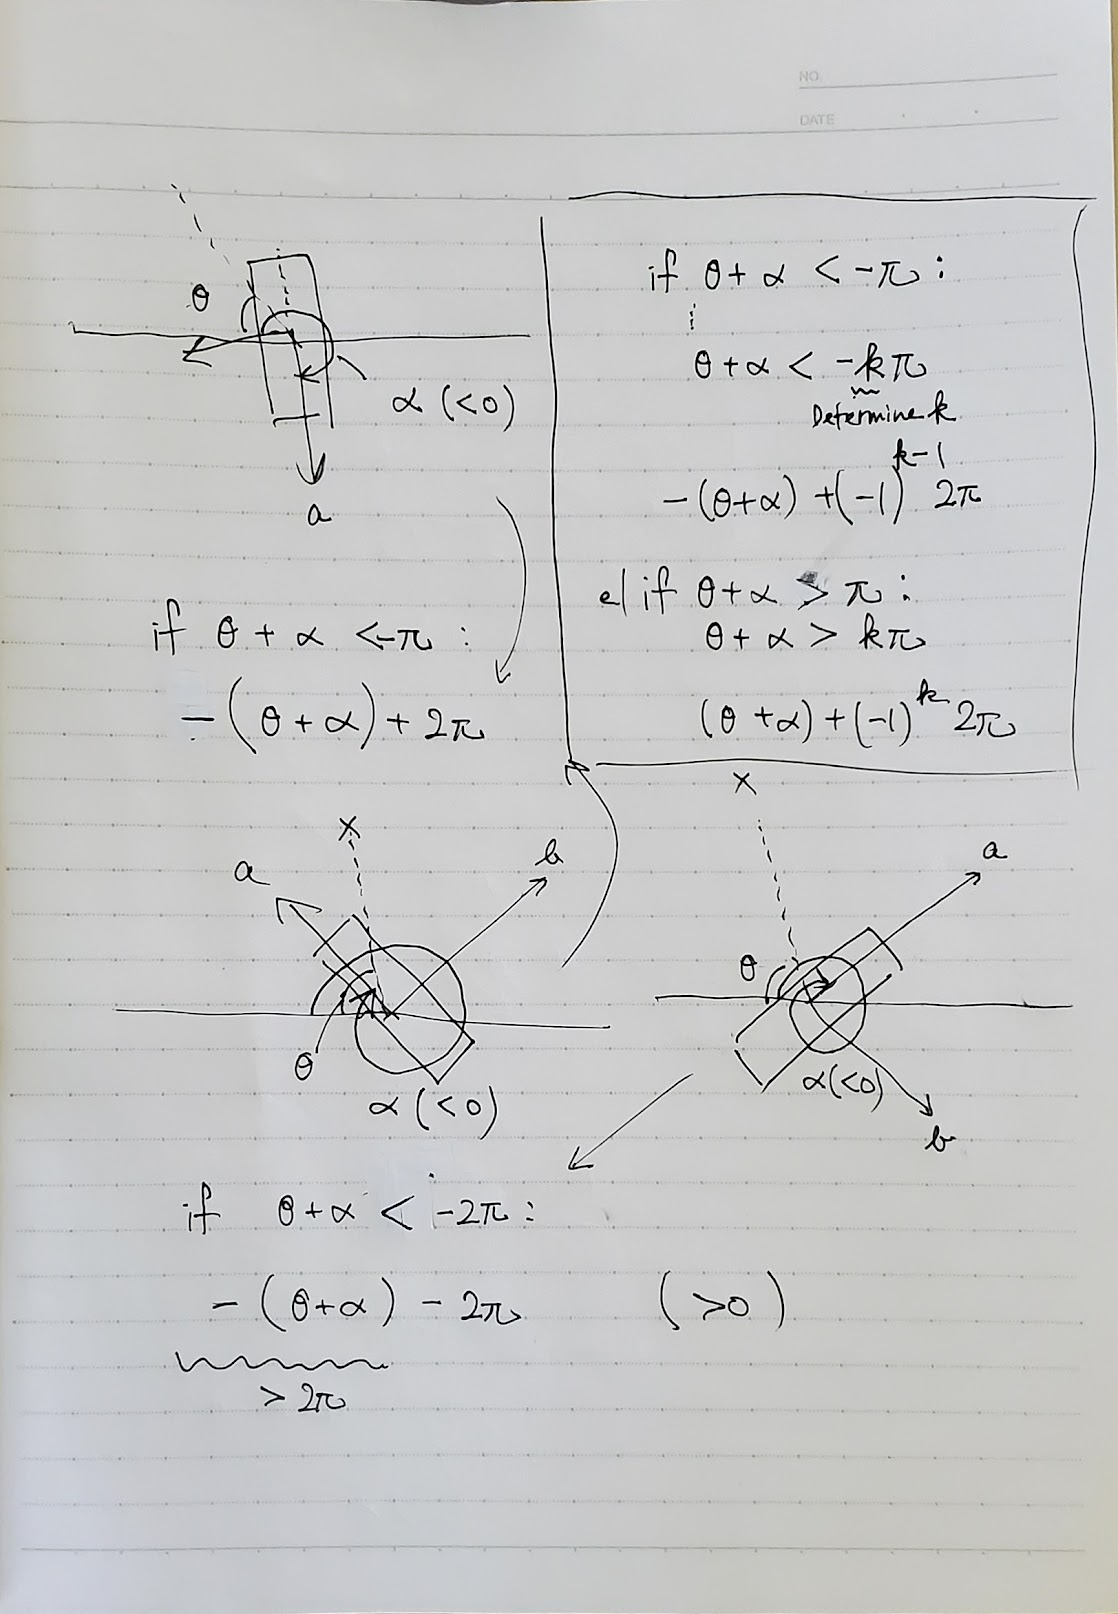 NO.
DATE
θ
α (<0)
a
if θ + α < -π :
- (θ + α) + 2π
if θ + α < -π :
θ + α < -kπ
Determine k
- (θ+α) + (-1)^{k-1} 2π
elif θ + α > π :
θ + α > kπ
(θ + α) + (-1)^k 2π
x
a
b
θ
α (<0)
x
a
θ
α(<0)
b
if θ+α < -2π :
- (θ+α) - 2π (>0)
> 2π